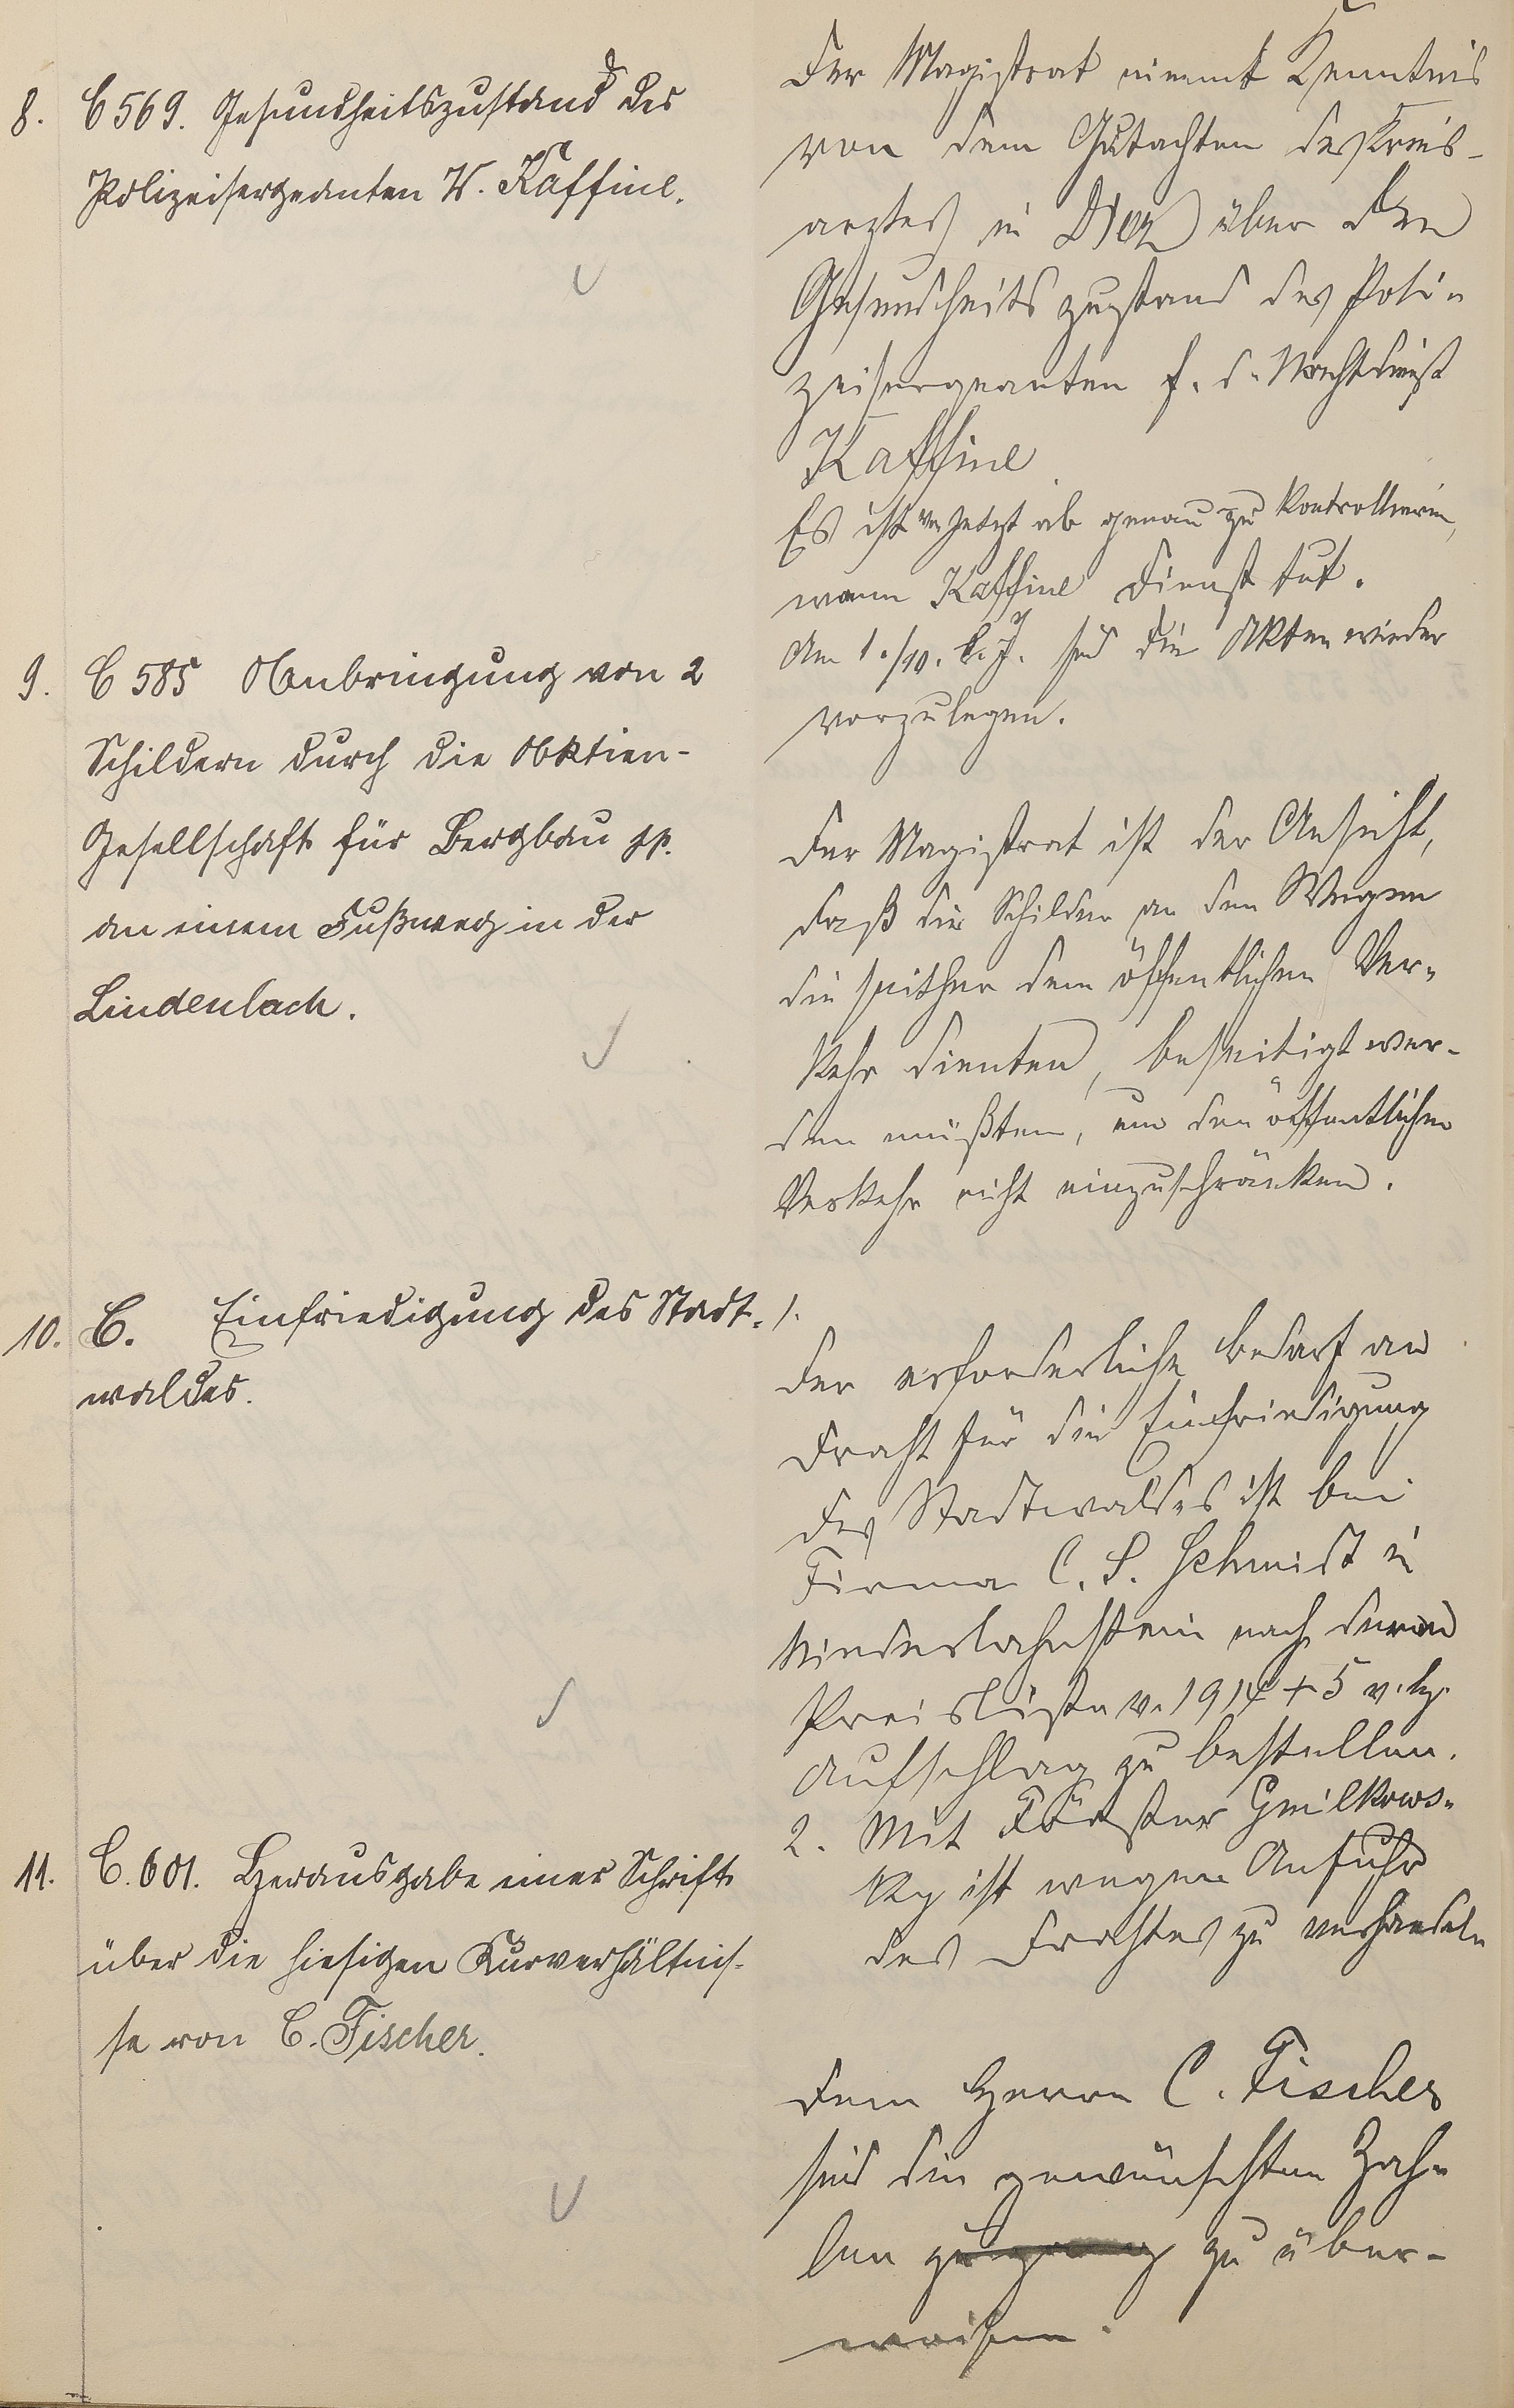 8. C 569. Gesundheitszustand des
Polizeisergeanten W. Kaffine.
Der Magistrat nimmt Kenntnis
von dem Gutachten des Kreis-
arztes in Diez über den
Gesundheitszustand des Poli-
zeisergeanten f. d. Nachtdienst
Kaffine
Es ist von jetzt ab genau zu kontrollieren,
wann Kaffine Dienst tut.
Am 1./10. d. J. sind die Akten wieder
vorzulegen.
9. C 585 Anbringung von 2
Schildern durch die Aktien-
Gesellschaft für Bergbau pp.
an einem Fußweg in der
Lindenbach.
Der Magistrat ist der Ansicht,
daß die Schilder an den Wegen
die seither dem öffentlichen Ver-
kehr dienten, beseitigt wer-
den müßten, um den öffentlichen
Verkehr nicht einzuschränken.
10. C. Einfriedigung des Stadt-
waldes.
1.
Der erforderliche Bedarf an
Draht für die Einfriedigung
des Stadtwaldes ist bei
Firma C. S. Schmidt in
Niederlahnstein nach deren
Preisliste v. 1914 + 5 v. H.
Aufschlag zu bestellen.
2. Mit Förster Gmilkows-
ky ist wegen Anfuhr
des Drahtes zu verhandeln
11. C. 601. Herausgabe einer Schrift
über die hiesigen Kurverhältnis-
se von C. Fischer.
Dem Herrn C. Fischer
sind die gewünschten Zah-
len zu über-
weisen.